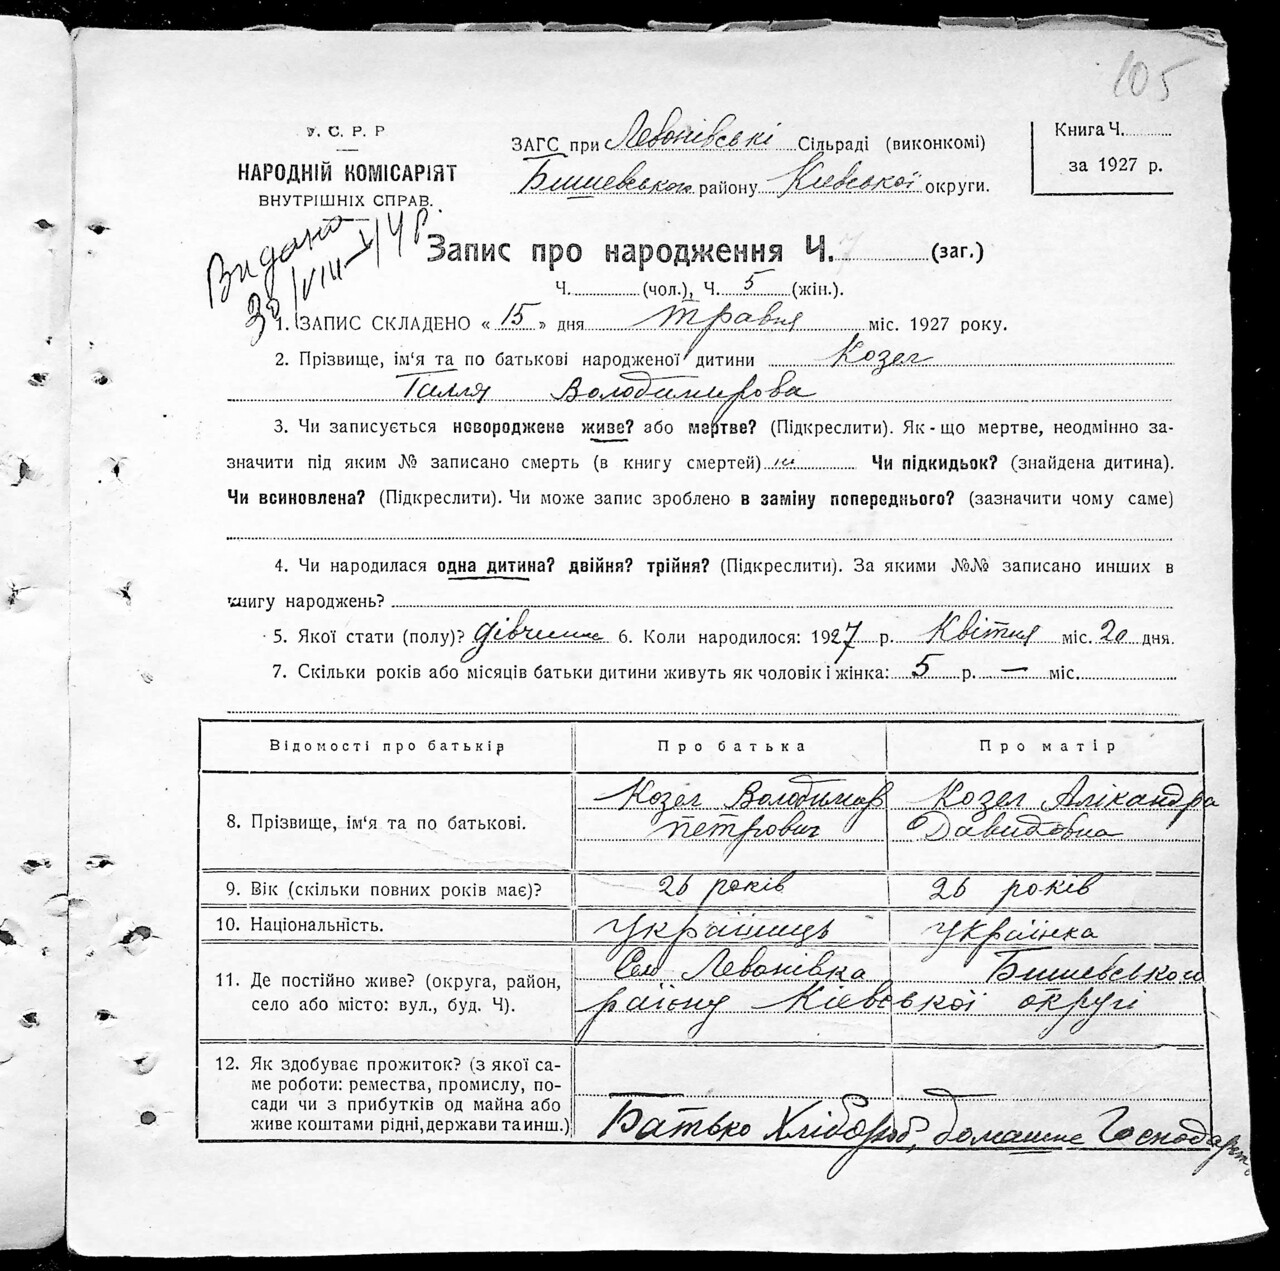 105
У. С. Р. Р
НАРОДНІЙ КОМІСАРІЯТ
ВНУТРІШНІХ СПРАВ.
ЗАГС при Левонівські Сільраді (виконкомі)
Бишевського району Київської округи.
Книга Ч.
за 1927 р.
Видано
30/VIII-
Запис про народження Ч. 7 (заг.)
Ч. (чол.), Ч. 5 (жін.).
1. ЗАПИС СКЛАДЕНО « 15 » дня травня міс. 1927 року.
2. Прізвище, ім'я та по батькові народженої дитини Козел
Галля Володимирова
3. Чи записується новороджене живе? або мертве? (Підкреслити). Як-що мертве, неодмінно за-
значити під яким № записано смерть (в книгу смертей) Чи підкидьок? (знайдена дитина).
Чи всиновлена? (Підкреслити). Чи може запис зроблено в заміну попереднього? (зазначити чому саме)
4. Чи народилася одна дитина? двійня? трійня? (Підкреслити). За якими №№ записано инших в
книгу народжень?
5. Якої стати (полу)? дівчина 6. Коли народилося: 1927 р. Квітня міс. 20 дня.
7. Скільки років або місяців батьки дитини живуть як чоловік і жінка: 5 р. — міс.
Відомості про батьків Про батька Про матір
8. Прізвище, ім'я та по батькові. Козел Володимир Петрович Козел Алікандра Давидовна
9. Вік (скільки повних років має)? 26 років 26 років
10. Національність. Українець Українка
11. Де постійно живе? (округа, район, Село Левонівка Бишевського
село або місто: вул., буд. Ч). району Кіевської округі
12. Як здобуває прожиток? (з якої са-
ме роботи: ремества, промислу, по-
сади чи з прибутків од майна або
живе коштами рідні, держави та инш.) Батько Хлібороб, домашнє Господарст.